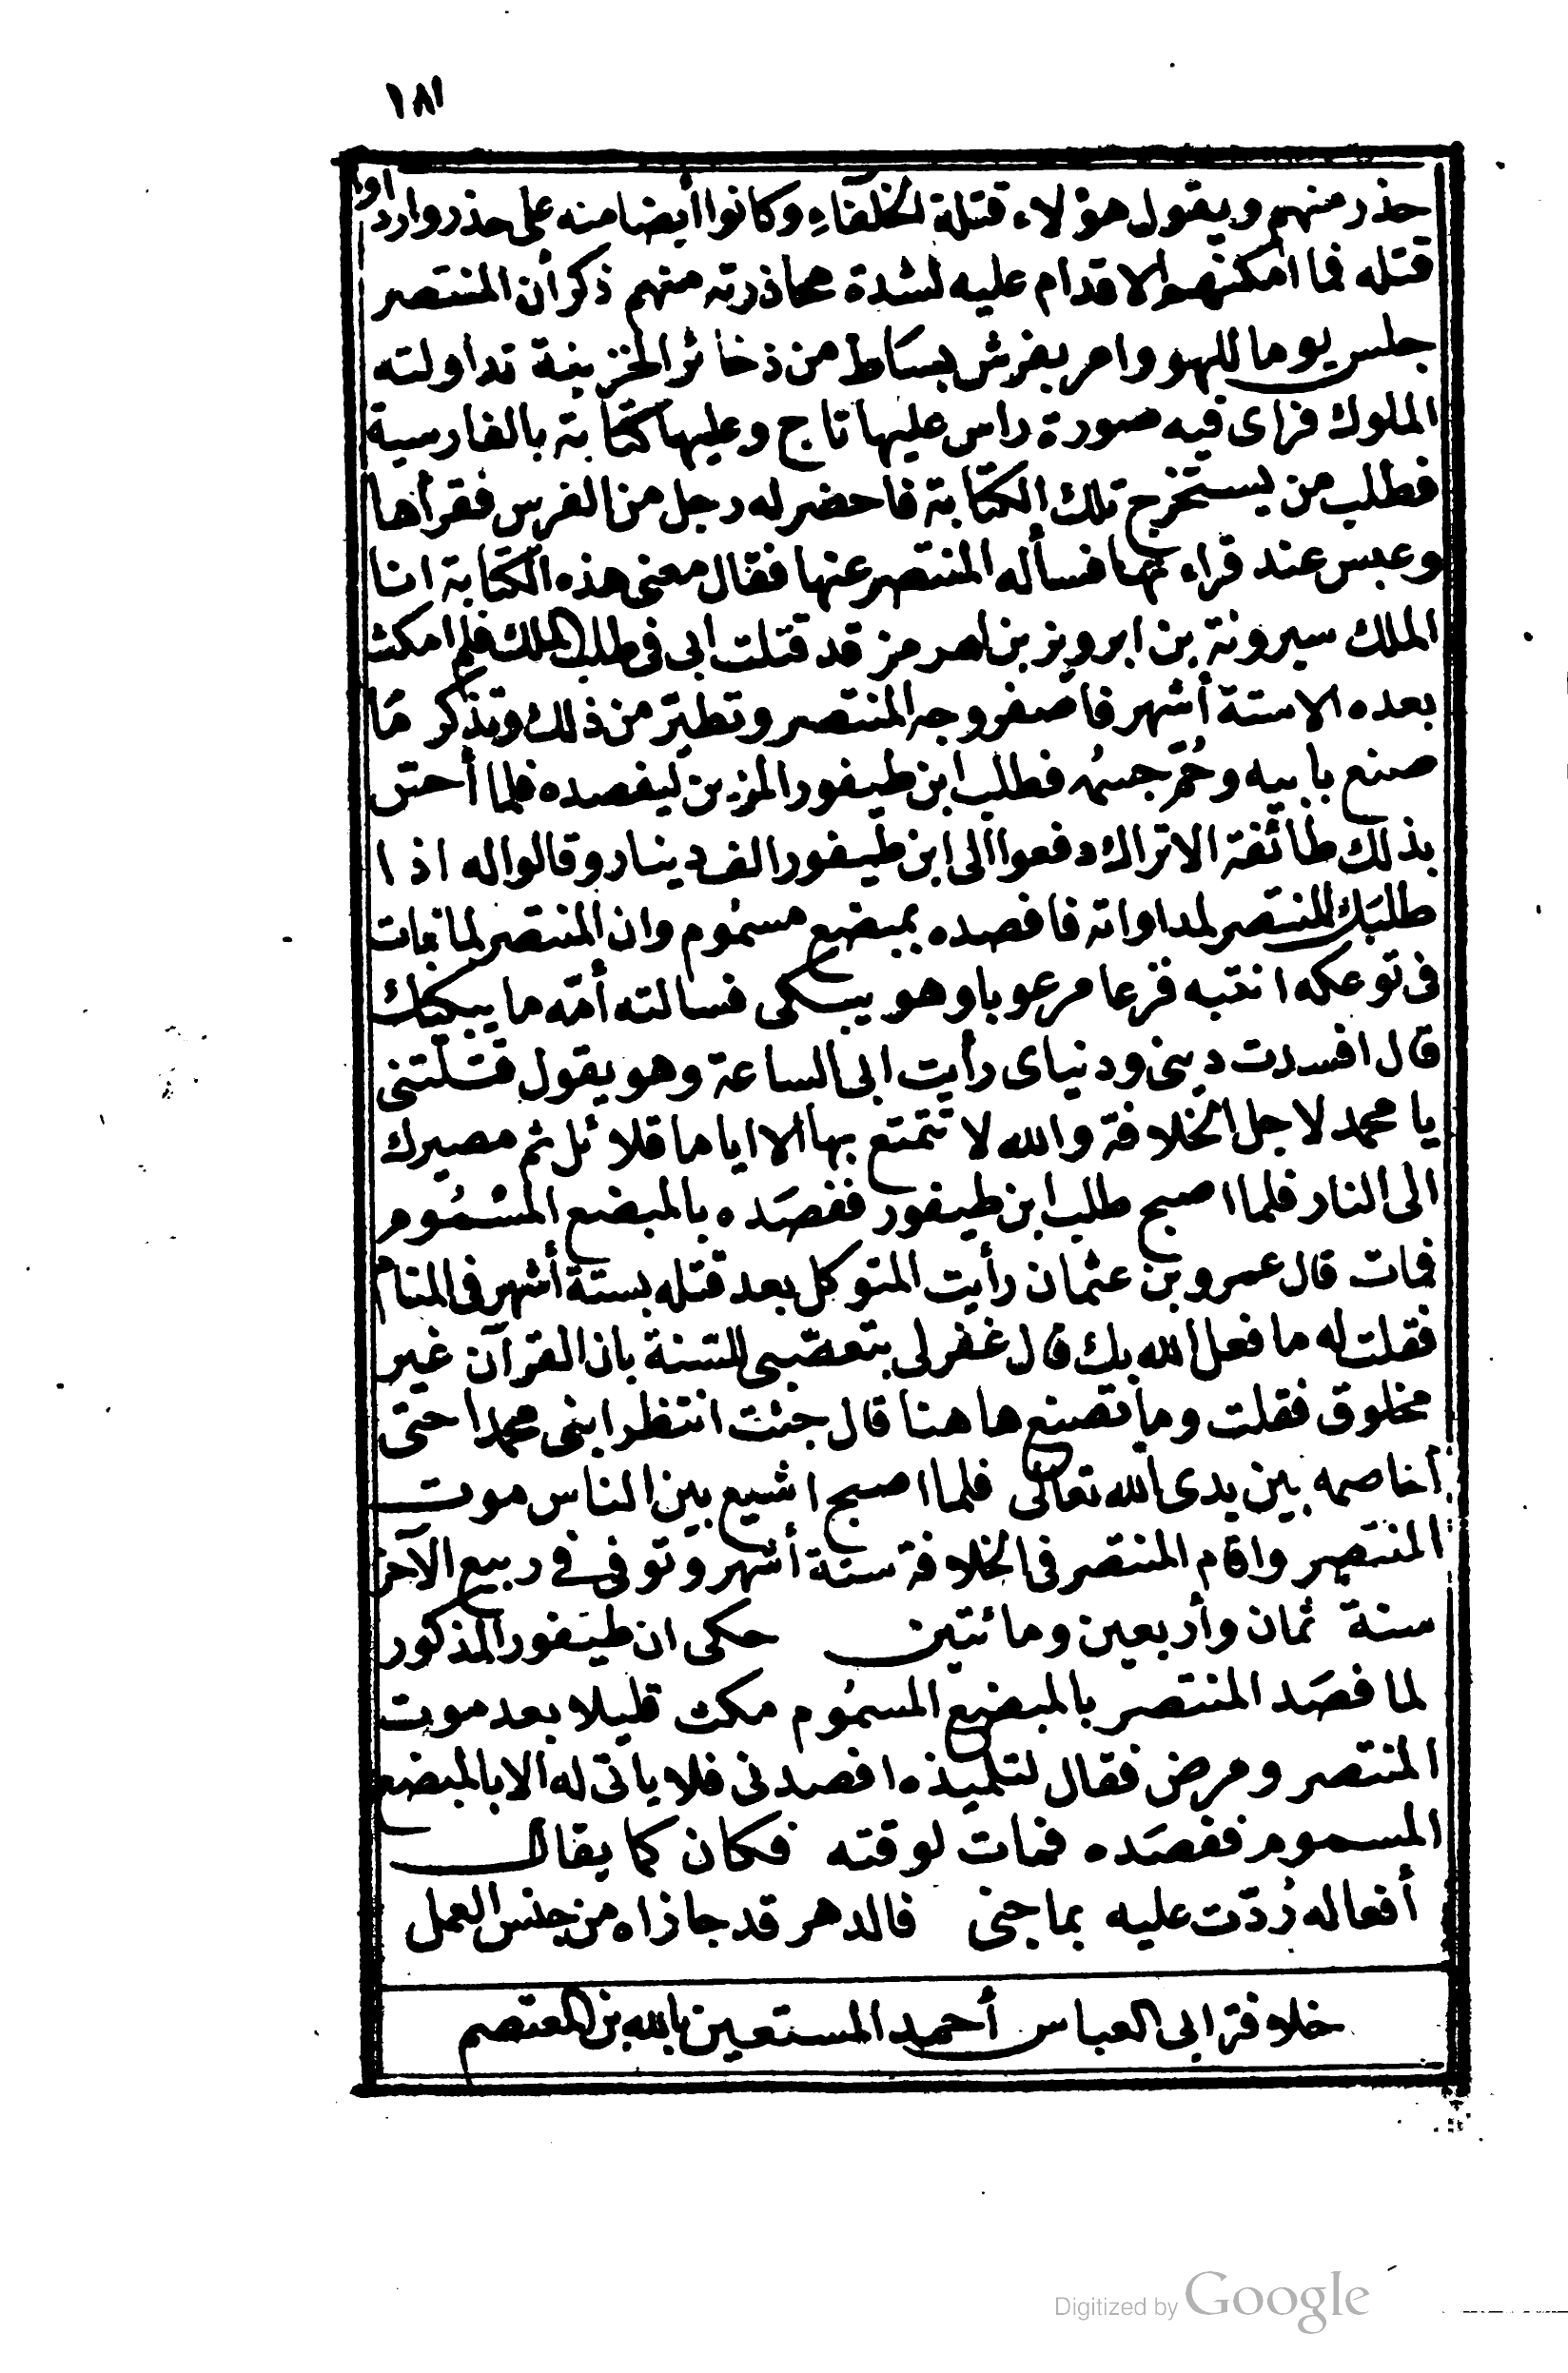 ١٨١
حذر منهم ويقول هؤلاء قتلة الخلفاء وكانوا أيضا منه على حذر وارادوا
قتله فما امكنهم الاقدام عليه لشدة محاذرته منهم ذكر أن المنتصر
جلس يوما للهو وامر بفرش بساط من ذخائر الخزينة تداولته
الملوك فراى فيه صورة راس عليها تاج وعليها كتابة بالفارسية
فطلب من يستخرج تلك الكتابة فاحضر له رجل من الفرس فقرأها
وعبس عند قراءتها فسأله المنتصر عنها فقال معنى هذه الكتابة انا
الملك سيرونة بن ابرويز بن هرمز قد قتلت ابى فى طلب الملك فلم امكث
بعده الا ستة أشهر فاصفر وجه المنتصر وتطيّر من ذلك وتذكر مَا
صنع بابيه وحُمّ جسمه فطلب ابن طيفور المزين ليفصده فلما أحسّ
بذلك طائفة الاتراك دفعوا الى ابن طيفور الف دينار وقالوا له اذا
طلبَك المنتصر لمداواته فافصده بمبضع مسمُوم وان المنتصر لما بات
فى توعكه انتبه فزعا مرعوبا وهو يبكى فسالته أمّه ما يبكيك
قال افسدت دينى ودنياى رأيت ابى الساعة وهو يقول قتلتنى
يا محمد لاجل الخلافة والله لا تتمتع بها الا اياما قلائل ثم مصيرك
الى النار فلما اصبح طلب ابن طيفور ففصَده بالمبضع المسْمُوم
فمات قال عمرو بن عثمان رأيت المتوكل بعد قتله بستة أشهر فى المنام
فقلت له ما فعل الله بك قال غفر لى بتعصّبى للسّنة بان القرآن غير
مخلوق فقلت وما تصنع هاهنا قال جئت انتظر ابنى محمدا حتى
أخاصمه بين يدى الله تعالى فلما اصبح اشيع بين الناس موت
المنتصر واقام المنتصر فى الخلافة ستة أشهر وتوفى فى ربيع الآخر
سنة ثمان وأربعين ومائتين حكى ان طيَفور المذكور
لما فصَد المنتصر بالمبضع المسمُوم مكث قليلا بعد موت
المنتصر ومرض فقال لتلميذه افصدنى فلا ياتى له الا بالمبضع
المسموم ففصَده فمات لوقته فكان كما يقال
أفعاله رُدّت عليه بما جنى فالدهر قد جازاه من جنس العمل
خلافة ابى العباس أحمد المستعين بالله بن المعتصم
Digitized by Google